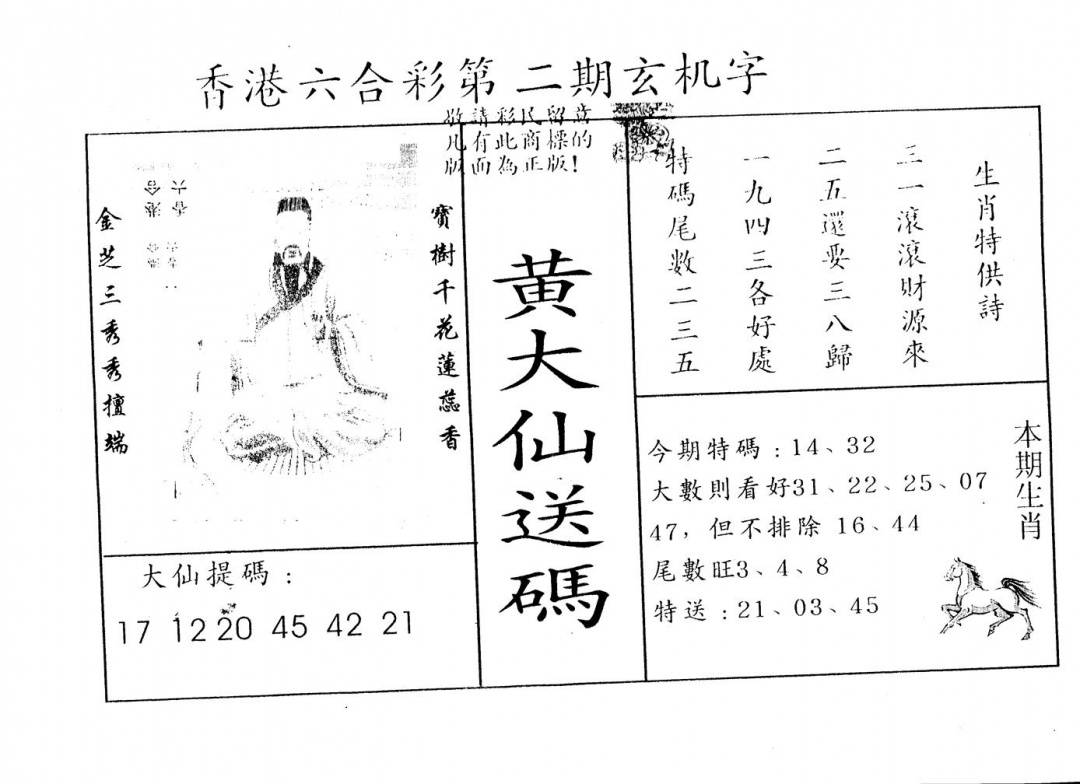 香港六合彩第二期玄机字
敬請彩民留意
凡有此商標的
版面為正版!
寶樹千花蓮蕊香
金芝三秀秀擅端
大仙提碼:
17 12 20 45 42 21
黄大仙送碼
生肖特供詩
三一滾滾財源來
二五還要三八歸
一九四三各好處
特碼尾數二三五
本期生肖
今期特碼:14、32
大數則看好31、22、25、07
47,但不排除 16、44
尾數旺3、4、8
特送:21、03、45